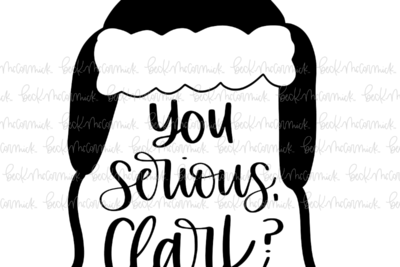 You
Serious,
Clark?